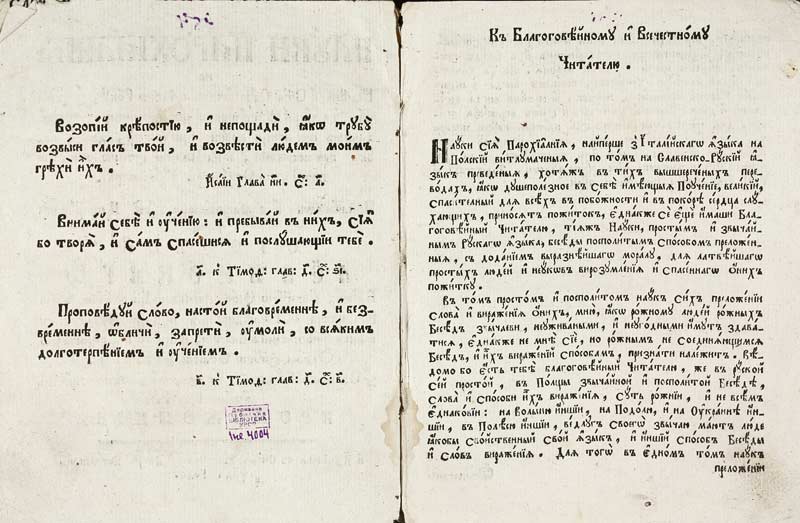 Возопі́й крѣ́постїю, и҆ непощадѝ, ꙗ҆́кѡ трꙋбꙋ̀
возвы́си гла́съ тво́й, и҆ возвѣстѝ лю́демъ мои̑мъ
грѣхѝ и҆́хъ.
И҆са́їи Глава̀ н҃и. Ст҃: а҃.
Внима́й себѣ̀ и҆ ᲂу҆че́нїю: и҆ пребыва́й въ ни́хъ, сїѧ̑
бо творѧ̀, и҆ са́мъ спасе́шисѧ и҆ послꙋ́шающїи тебѐ.
а҃. к̾ Тїмоѳ: глав: д҃. Ст҃: ѕ҃і.
Проповѣ́дꙋй сло́во, насто́й благовре́меннѣ, и҆ без-
вре́меннѣ, ѡ҆бличѝ, запретѝ, ᲂу҆молѝ, со всѧ́кимъ
долготерпѣ́нїемъ и҆ ᲂу҆че́нїемъ.
в҃. к̾ Тїмоѳ: глав: д҃. Ст҃: в҃.
Державна
Публічна
БІБЛІОТЕКА
УРСР
Іне. 4004
Къ Благоговѣ́йному и҆ Всечестно́мꙋ
Чита́телю.
Наꙋ́ки сїѧ̑ Парохїа́лнїѧ, найпе́рши з̾ І҆талі́йскагѡ ꙗ҆зы́ка на
По́лскїй витлꙋма́чныѧ, по то́мъ на Славе́нско-Рꙋ́скїй ꙗ҆-
зы́къ приведе́ныѧ, хотѧ́жъ въ ти́хъ вышшерече́ныхъ пере-
во́дахъ, ꙗ҆́кѡ дꙋшеполе́зное въ себѣ̀ и҆мѣ́ющыѧ Поꙋче́нїе, вели́кїй,
Спаси́тенный длѧ всѣ́хъ въ побо́жности и҆ въ поко́рѣ се́рдца слꙋ́-
хающихъ, прино́сѧтъ пожи́токъ, є҆дна́кже сѐ є҆щѐ и҆́маши Бла-
гоговѣ́йный Чита́телю, тїѧ́жъ Наꙋ́ки, просты́мъ и҆ звыча́й-
нымъ Рꙋ́скагѡ ꙗ҆зы́ка, бесѣ́ды посполи́тымъ спо́собомъ преложе́н-
ныѧ, съ дода́нїемъ вырази́ѣйшагѡ мора́лꙋ, длѧ ла́твѣйшагѡ
просты́хъ люде́й и҆ неꙋ́кѡвъ вирозꙋмле́нїѧ и҆ спасе́ннагѡ ѻ҆ни́хъ
пожи́ткꙋ.
Въ то́мъ просто́мъ и҆ посполи́томъ наꙋ́къ си́хъ преложе́нїи
Слова̀ и҆ вираже́нїѧ ѻ҆ни́хъ, мню̀, ꙗ҆́кѡ ро́жномꙋ люде́й ро́жныхъ
Бесѣ́дъ з̾выча́еви, неꙋжива́ными, и҆ неꙋго́дными и҆́мꙋтъ здава́-
тисѧ, є҆дна́кже не мнѣ̀ сїѐ, но ро́жнымъ не соединѧ́ющимсѧ
Бесѣ́дъ, и҆ и҆́хъ вираже́нїй спо́собамъ, призна́ти нале́житъ. Вѣ́-
домо бо є҆́сть тебѣ̀ благоговѣ́йный Чита́телю, же въ рꙋ́ской
се́й просто́й, въ По́лщы звыча́йной и҆ посполи́той Бесѣ́дѣ,
Слова̀ и҆ спо́соби и҆́хъ вираже́нїѧ, сꙋ́ть ро́жнїи, и҆ не всѣ́мъ
є҆дна́ковїи: на Волы́ни и҆́ншїи, на Подо́лю, и҆ на Оу҆краи́нѣ и҆́н-
шїи, въ Полѣ́сю и҆́ншїи, ве́длꙋгъ своегѡ̀ звыча́ю ма́ютъ лю́де
ꙗ҆́кобы сво́йственный сво́й ꙗ҆зы́къ, и҆ и҆́ншїй спо́собъ Бесѣ́ды
и҆ сло́въ вираже́нїѧ. Длѧ тогѡ̀ въ є҆дно́мъ то́мъ наꙋ́къ
преложе́нїи